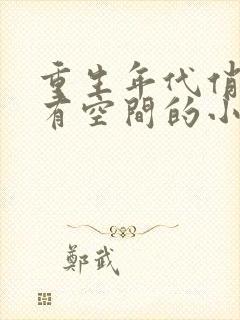 重生年代俏
有空間的小
鄭武